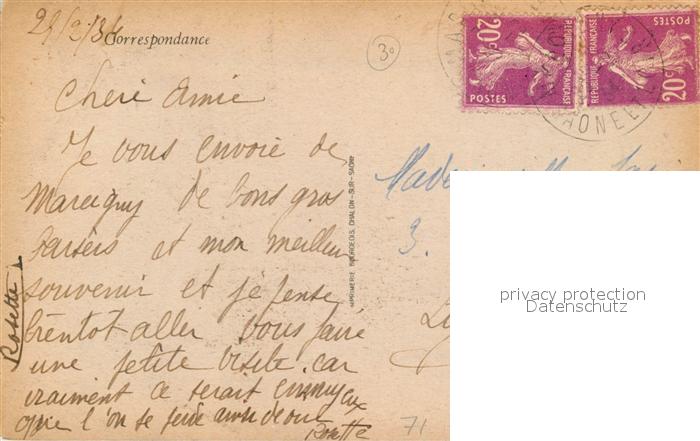 29/2/34
Correspondance
30
Chere Amie
Je vous envoie de
Marcigny de bons gros
baisers et mon meilleur
souvenir et je pense
bientot aller vous faire
une petite visite. car
vraiment ce serait ennuyeux
que l'on se
Rosette
Rosette
IMPRIMERIE BOURGEOIS, CHALON-SUR-SAONE
20c POSTES REPUBLIQUE FRANÇAISE
20c POSTES REPUBLIQUE FRANÇAISE
SAONE ET
3.
privacy protection
Datenschutz
71